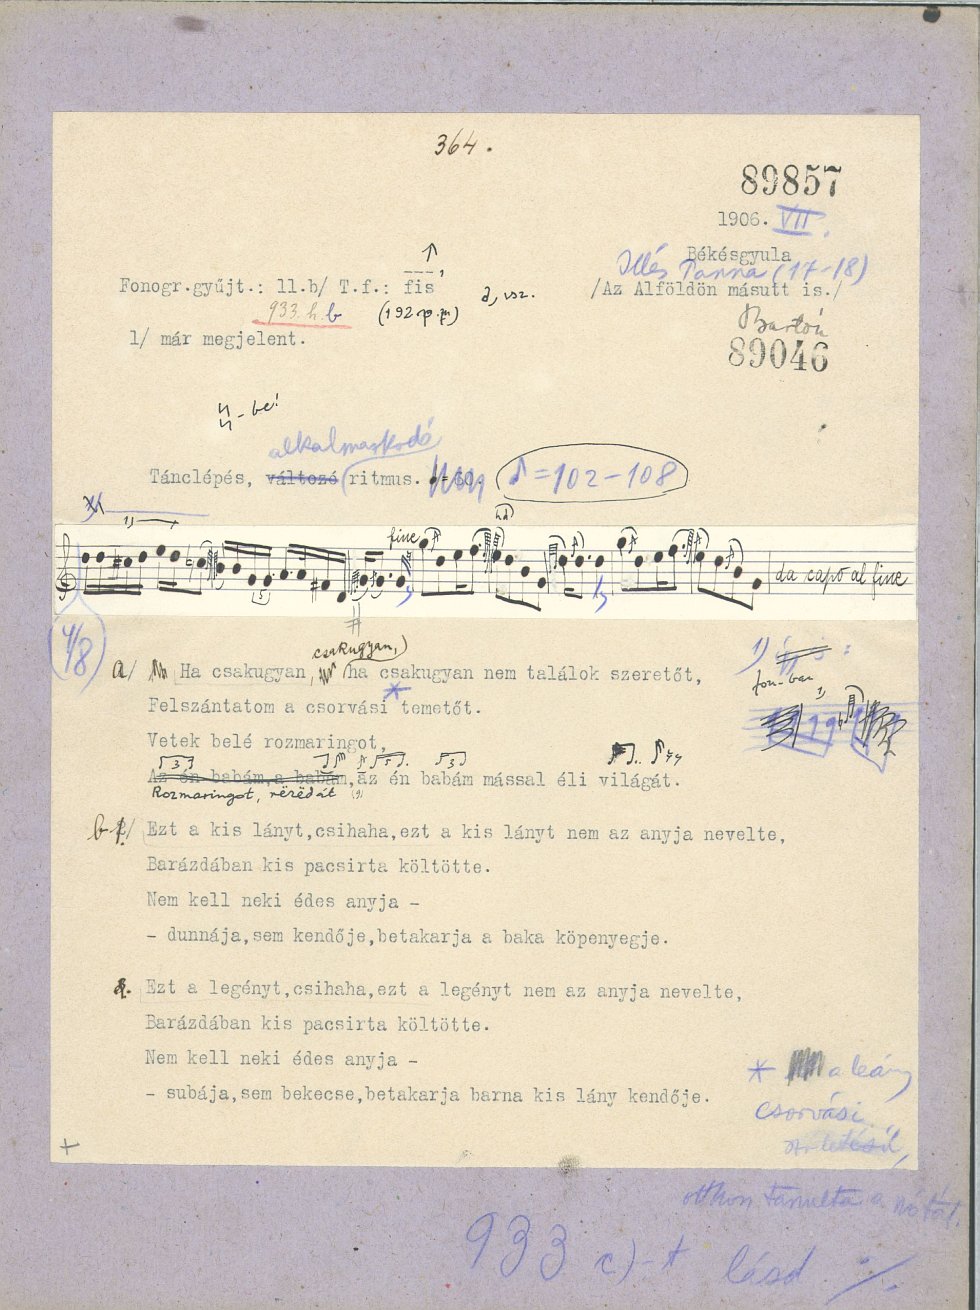 364.
89857
1906. VII.
Békésgyula
Illés Panna (17-18)
Fonogr.gyűjt.: 11.b/ T.f.: fis
/Az Alföldön másutt is./
933.h.b
(192 p.p.)
Bartók
1/ már megjelent.
89046
- be!
alkalmazkodó
Tánclépés, változó ritmus. ♩= 60.
♪=102-108
1)
fine
da capo al fine
4/8
csakugyan,
a/ Ha csakugyan, ha csakugyan nem találok szeretőt,
Felszántatom a csorvási * temetőt.
Vetek belé rozmaringot,
Az én babám,a babám,az én babám mással éli világát.
Rozmaringot, rëzëdát
b/ Ezt a kis lányt,csihaha,ezt a kis lányt nem az anyja nevelte,
Barázdában kis pacsirta költötte.
Nem kell neki édes anyja -
- dunnája,sem kendője,betakarja a baka köpenyegje.
Ezt a legényt,csihaha,ezt a legényt nem az anyja nevelte,
Barázdában kis pacsirta költötte.
Nem kell neki édes anyja -
- subája,sem bekecse,betakarja barna kis lány kendője.
1)
fon-ban
* a leány
csorvási
otthon tanulta a nótát.
933 c)-t lásd ·/.